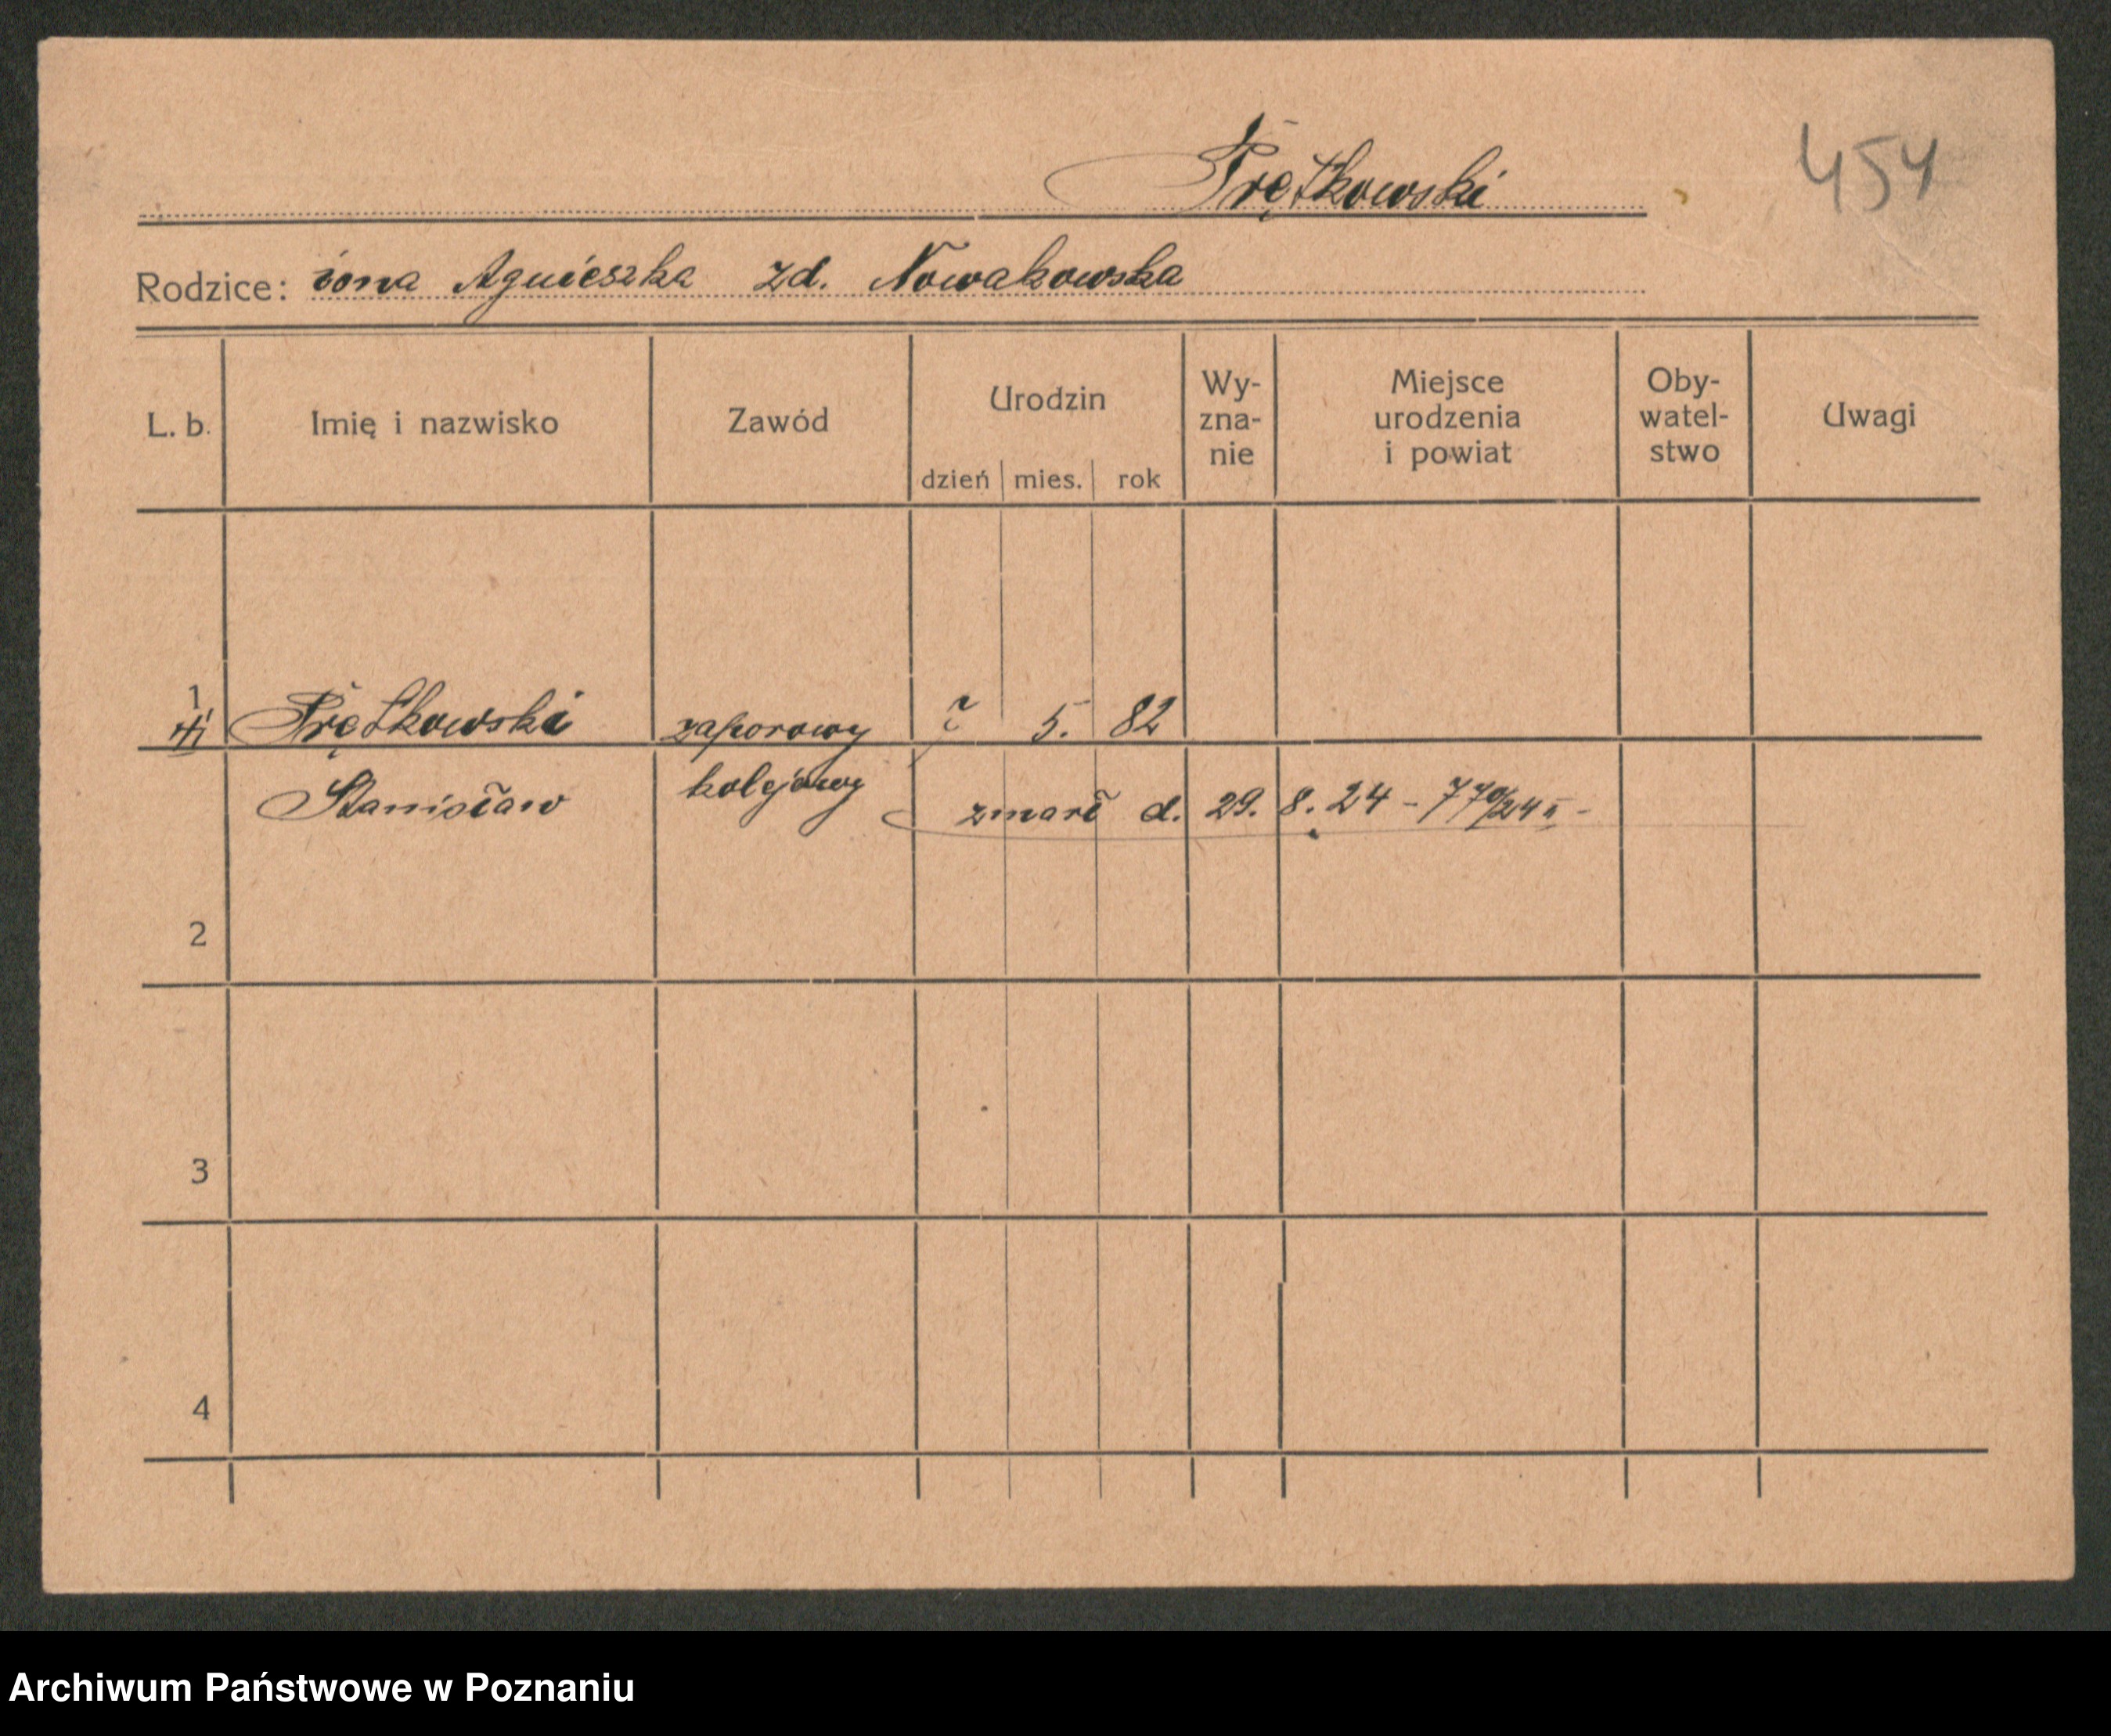 Prętkowski
454
Rodzice: żona Agnieszka zd. Nowakowska
L. b.
Imię i nazwisko
Zawód
Urodzin
dzień mies. rok
Wy-
zna-
nie
Miejsce
urodzenia
i powiat
Oby-
watel-
stwo
Uwagi
1
Prętkowski zaporowy ? 5. 82
Stanisław kolejowy
zmarł d. 29. 8. 24 - 770/24 II -
2
3
4
Archiwum Państwowe w Poznaniu